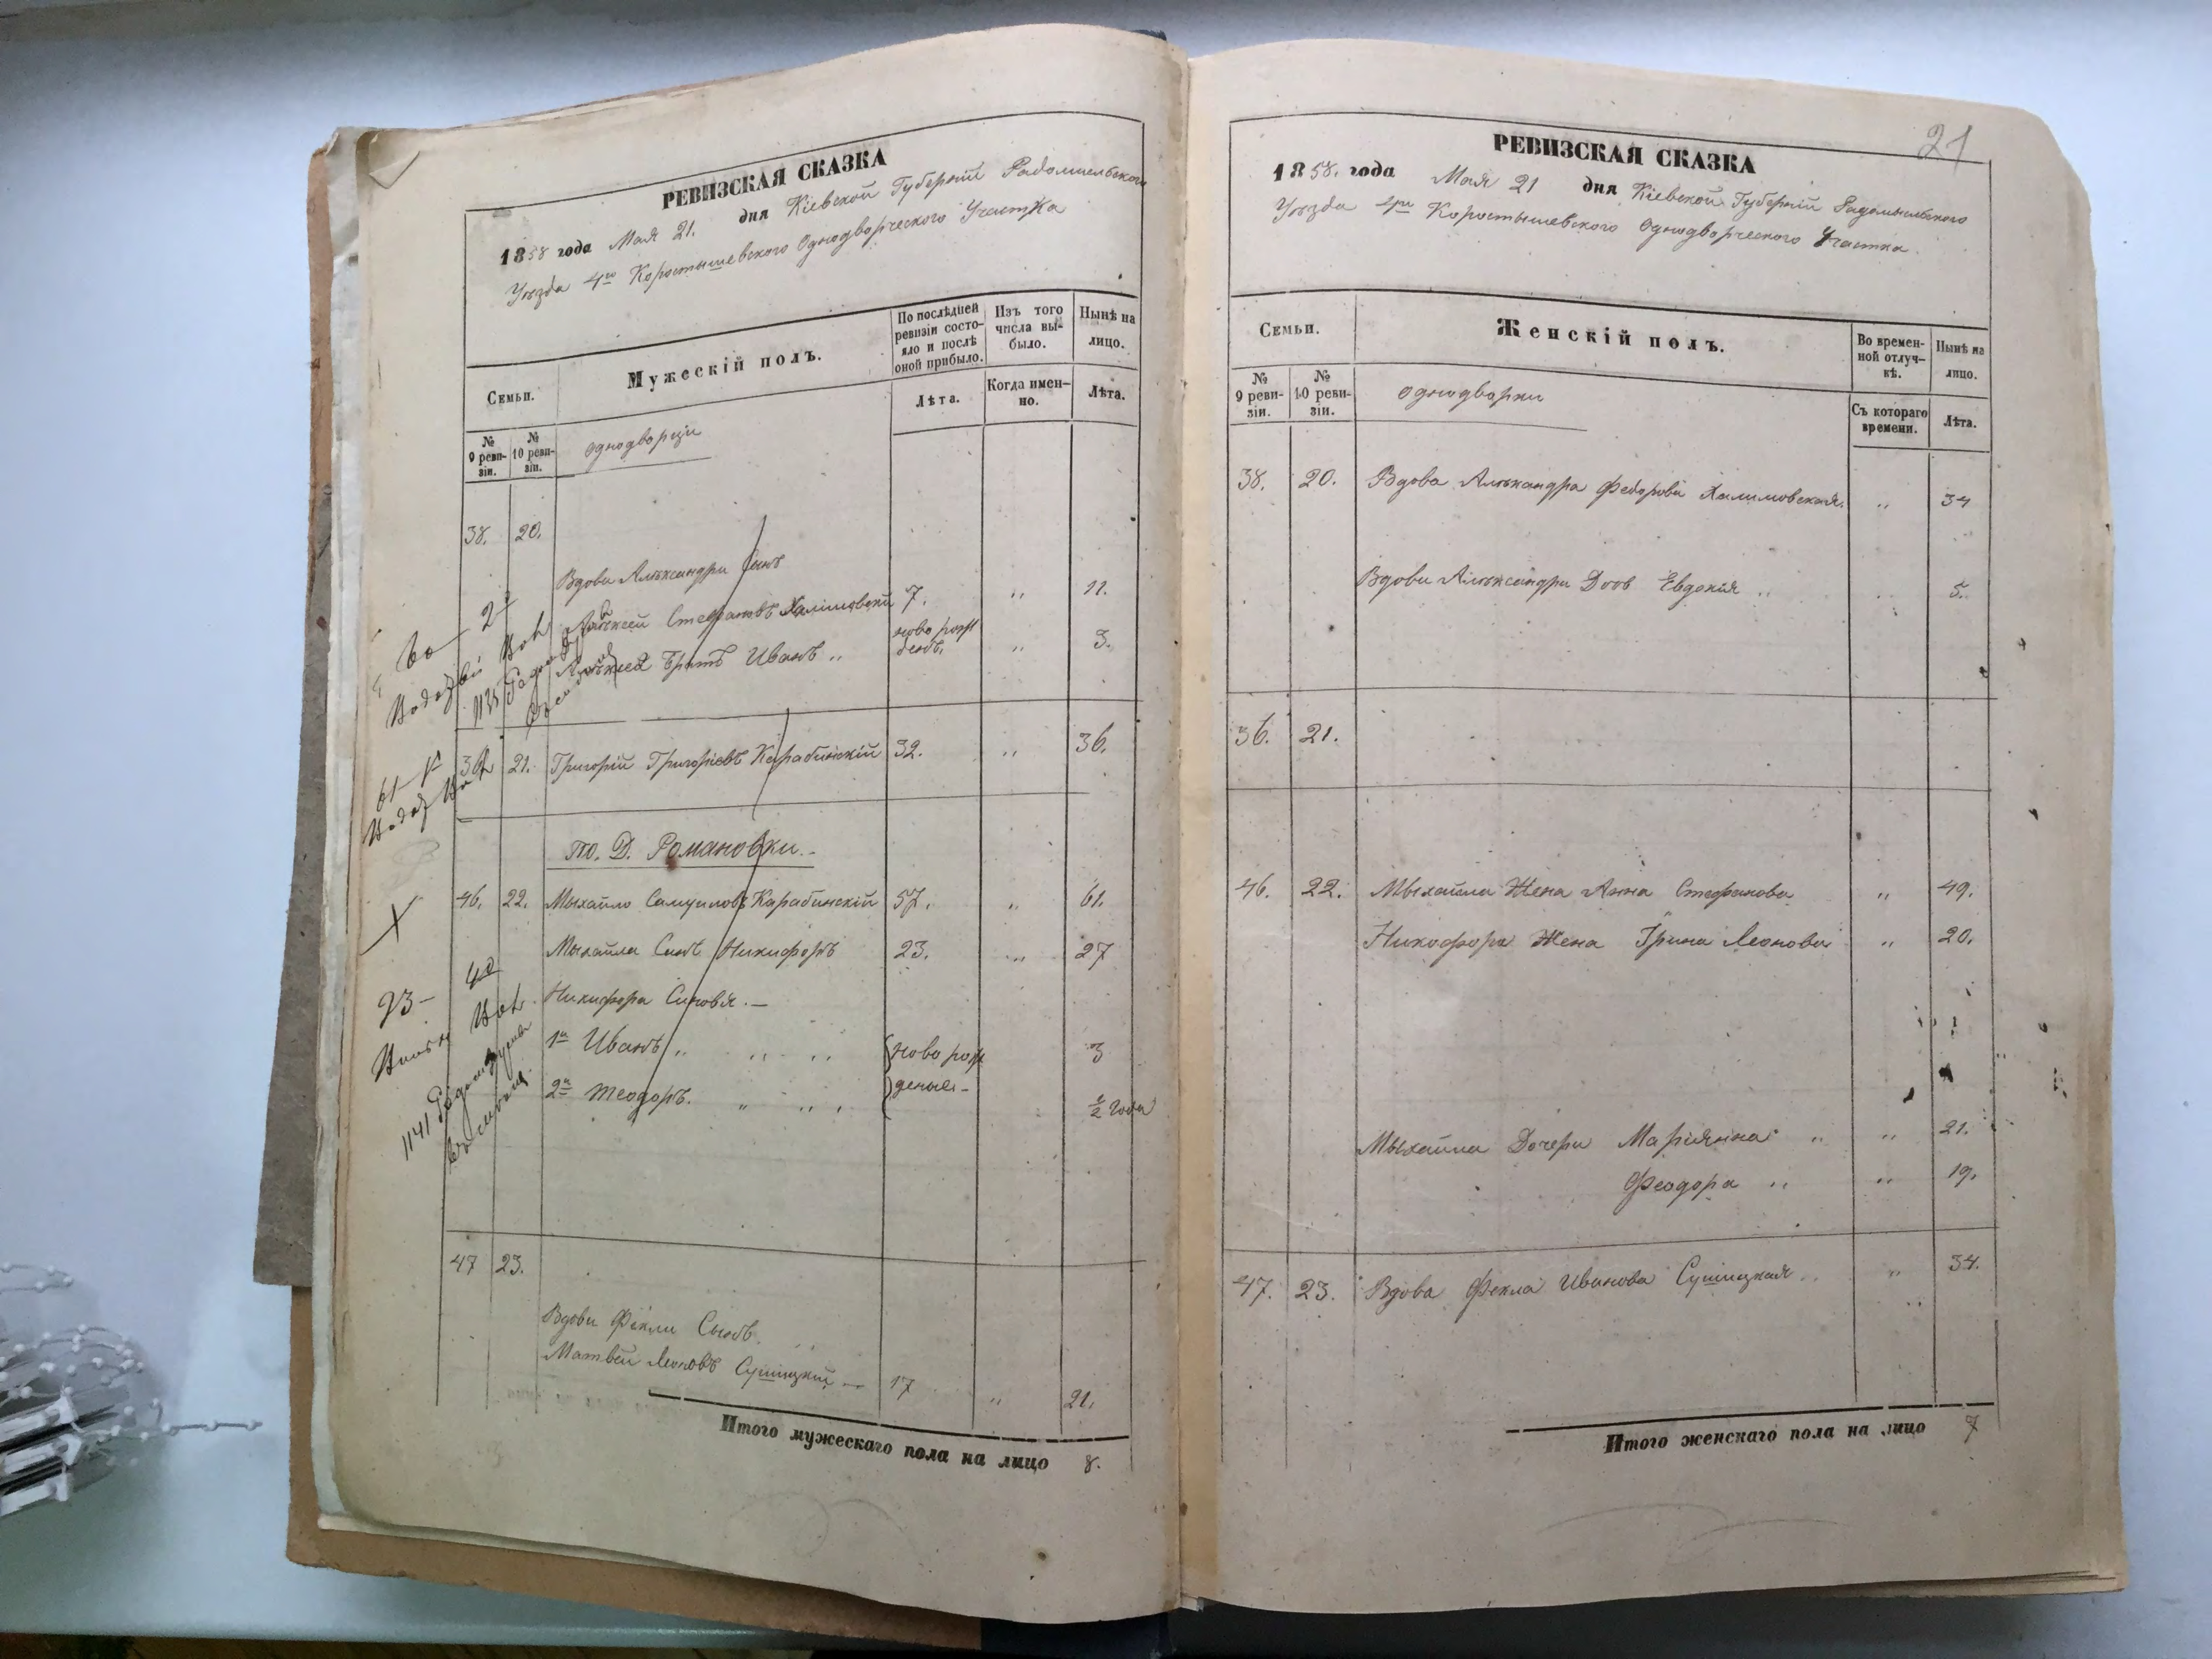 РЕВИЗСКАЯ СКАЗКА
1858 года Мая 21. дня Кіевской Губерніи Радомысльского
Уѣзда 4го Коростышевского Однодворческого Участка
Семьи.
Мужескій полъ.
По послѣдней ревизіи состояло и послѣ оной прибыло.
Изъ того числа выбыло.
Нынѣ на лицо.
№ 9 ревизіи.
№ 10 ревизіи.
однодворци
Лѣта.
Когда именно.
Лѣта.
38. 20.
Вдови Алѣксандри Сынъ
Алѣксей Стефановъ Халимовскій 7. „ 11.
Алѣксея Братъ Иванъ „ ново рожденъ. „ 3.
60 2
36 21. Григорій Григоріевъ Карабинскій 32. „ 36.
61
по. Д. Романовки.
46. 22. Мыхайло Самуиловъ Карабинскій 57. „ 61.
Мыхайла Сынъ Никифоръ 23. „ 27
Никифора Синовья. —
1й Иванъ „ „ „ новорожденые - 3
2й Теодоръ. „ „ „ 1/2 Года
1141
47 23.
Вдови Фекли Сынъ
Матвей Леоновъ Сушицкій — 17 „ 21.
Итого мужескаго пола на лицо 8.
21
РЕВИЗСКАЯ СКАЗКА
1858. года Мая 21 дня Кіевской Губерніи Радомысльского
Уѣзда 4го Коростышевского Однодворческого Участка.
Семьи.
Женскій полъ.
Во временной отлучкѣ.
Нынѣ на лицо.
№ 9 ревизіи.
№ 10 ревизіи.
однодворки
Съ котораго времени.
Лѣта.
38. 20. Вдова Алѣксандра Федорова Халимовская. „ 34
Вдови Алѣксандри Дочь Евдокія „ „ 5.
36. 21.
46. 22. Мыхайла Жена Анна Стефанова „ 49.
Никифора Жена Ірина Леонова „ 20.
Мыхайла Дочери Маріянна „ „ 21.
Феодора „ „ 19.
47. 23. Вдова Фекла Иванова Сушицкая „ „ 34.
Итого женскаго пола на лицо 7